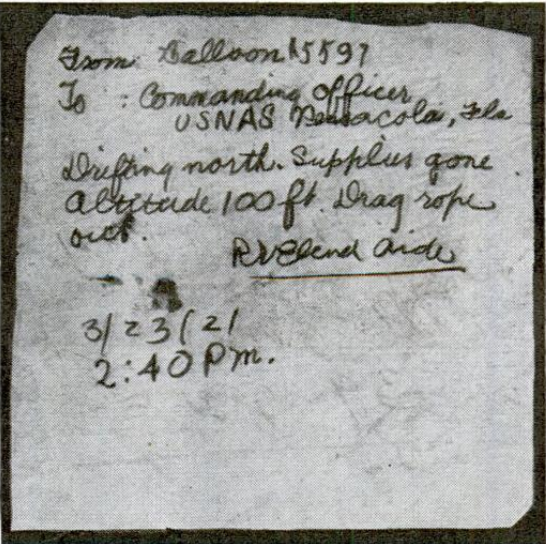 From Balloon A5597
To : Commanding Officer
USNAS Pensacola, Fla
Drifting north. Supplies gone
Altitude 100 ft. Drag rope
out.
3/23/21
2:40 Pm.